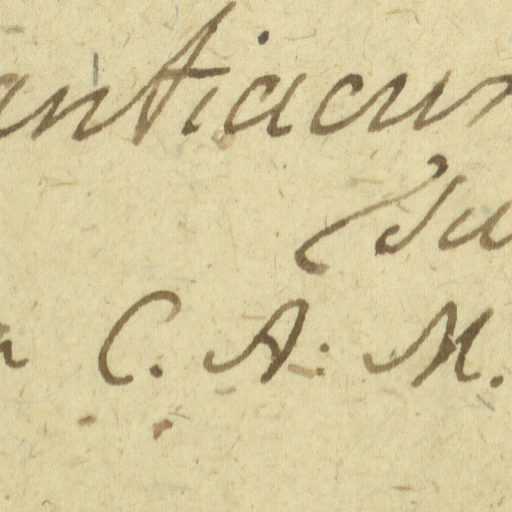 antiacum
su
a C. A. M.